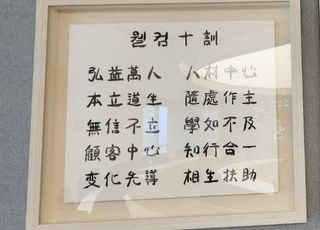 웰컴十訓
弘益萬人 人材中心
本立道生 隨處作主
無信不立 學如不及
顧客中心 知行合一
変化先導 相生扶助